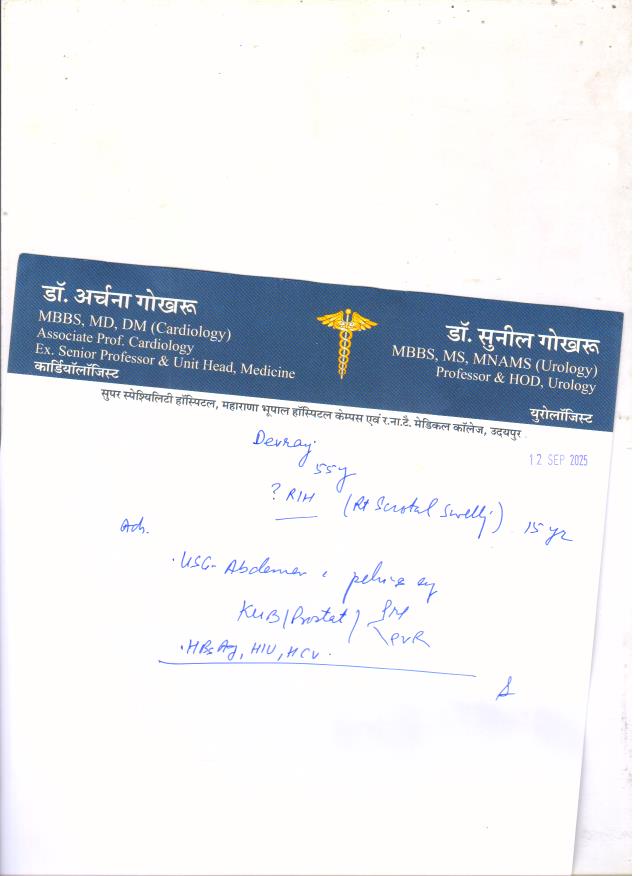 डॉ. अर्चना गोखरू
MBBS, MD, DM (Cardiology)
Associate Prof. Cardiology
Ex. Senior Professor & Unit Head, Medicine
कार्डियॉलॉजिस्ट
डॉ. सुनील गोखरू
MBBS, MS, MNAMS (Urology)
Professor & HOD, Urology
युरोलॉजिस्ट
सुपर स्पेश्यिलिटी हॉस्पिटल, महाराणा भूपाल हॉस्पिटल केम्पस एवं र.ना.टै. मेडिकल कॉलेज, उदयपुर
12 SEP 2025
Devraj
55y
? RIH (Rt Scrotal Swelly) 15 yr
Adv.
. USG - Abdomen
KUB/Prostat/
PVR
. HBsAg, HIV, HCV.